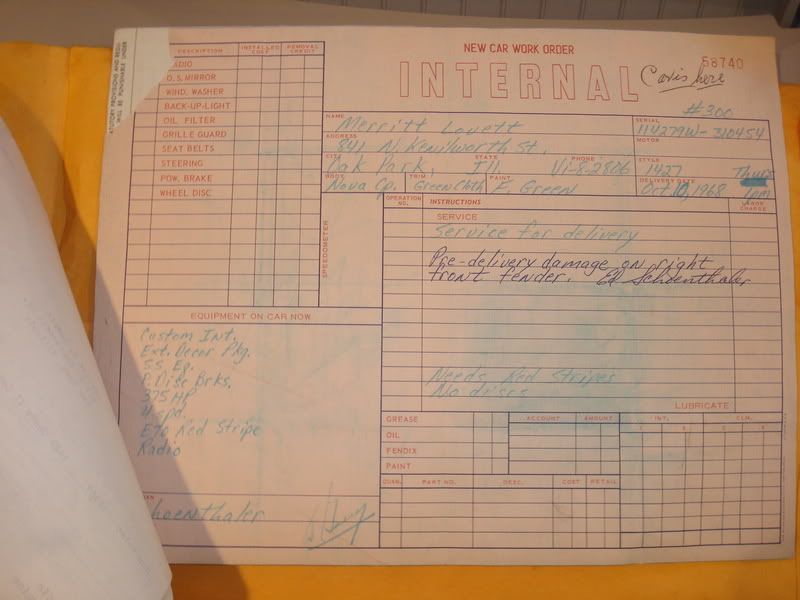 NEW CAR WORK ORDER
INTERNAL
58740
Car is here
#300
DESCRIPTION INSTALLED COST REMOVAL CREDIT
RADIO
O.S. MIRROR
WIND. WASHER
BACK-UP-LIGHT
OIL FILTER
GRILLE GUARD
SEAT BELTS
STEERING
POW. BRAKE
WHEEL DISC
SPEEDOMETER
NAME Merritt Lovett
SERIAL 114279W-310454
ADDRESS 841 N. Kenilworth St.
MOTOR
CITY Oak Park, STATE Ill PHONE Vi-8-2806
STYLE 1427
BODY Nova Cp. TRIM Green Cloth PAINT E. Green
DELIVERY DATE Oct 10, 1968
Thurs
1pm
OPERATION NO. INSTRUCTIONS LABOR CHARGE
SERVICE
Service for delivery
Pre-delivery damage on right
front fender. Ed Schoenthaler
Needs Red Stripes
No discs
EQUIPMENT ON CAR NOW
Custom Int.
Ext. Decor Pkg.
SS Eq.
P. Disc Brks.
375 HP
4 spd.
E70 Red Stripe
Radio
hoenthaler
LUBRICATE
GREASE
OIL
FENDIX
PAINT
ACCOUNT AMOUNT
INT. CLM.
QUAN. PART NO. DESC. COST RETAIL